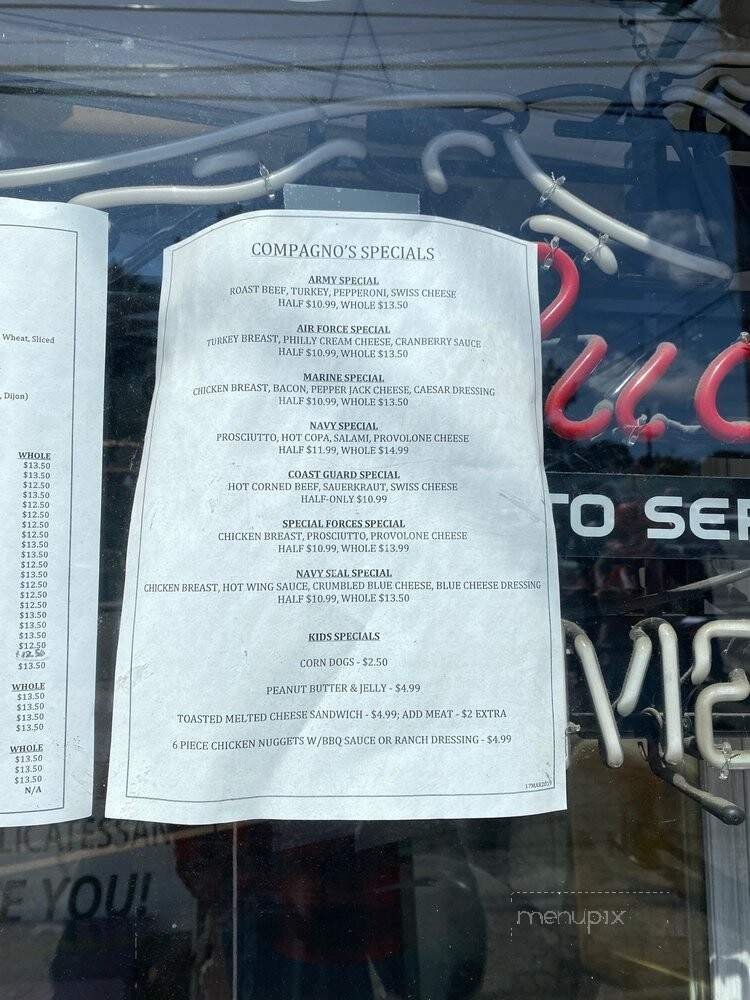 COMPAGNO'S SPECIALS
ARMY SPECIAL
ROAST BEEF, TURKEY, PEPPERONI, SWISS CHEESE
HALF $10.99, WHOLE $13.50
AIR FORCE SPECIAL
TURKEY BREAST, PHILLY CREAM CHEESE, CRANBERRY SAUCE
HALF $10.99, WHOLE $13.50
MARINE SPECIAL
CHICKEN BREAST, BACON, PEPPER JACK CHEESE, CAESAR DRESSING
HALF $10.99, WHOLE $13.50
NAVY SPECIAL
PROSCIUTTO, HOT COPA, SALAMI, PROVOLONE CHEESE
HALF $11.99, WHOLE $14.99
COAST GUARD SPECIAL
HOT CORNED BEEF, SAUERKRAUT, SWISS CHEESE
HALF-ONLY $10.99
SPECIAL FORCES SPECIAL
CHICKEN BREAST, PROSCIUTTO, PROVOLONE CHEESE
HALF $10.99, WHOLE $13.99
NAVY SEAL SPECIAL
CHICKEN BREAST, HOT WING SAUCE, CRUMBLED BLUE CHEESE, BLUE CHEESE DRESSING
HALF $10.99, WHOLE $13.50
KIDS SPECIALS
CORN DOGS - $2.50
PEANUT BUTTER & JELLY - $4.99
TOASTED MELTED CHEESE SANDWICH - $4.99; ADD MEAT - $2 EXTRA
6 PIECE CHICKEN NUGGETS W/BBQ SAUCE OR RANCH DRESSING - $4.99
Wheat, Sliced
, Dijon)
WHOLE
$13.50
$13.50
$12.50
$13.50
$12.50
$12.50
$12.50
$12.50
$13.50
$13.50
$12.50
$13.50
$12.50
$12.50
$12.50
$13.50
$13.50
$13.50
$12.50
$12.50
$13.50
WHOLE
$13.50
$13.50
$13.50
$13.50
WHOLE
$13.50
$13.50
$13.50
N/A
TO SER
LICATESSAN
E YOU!
menupix